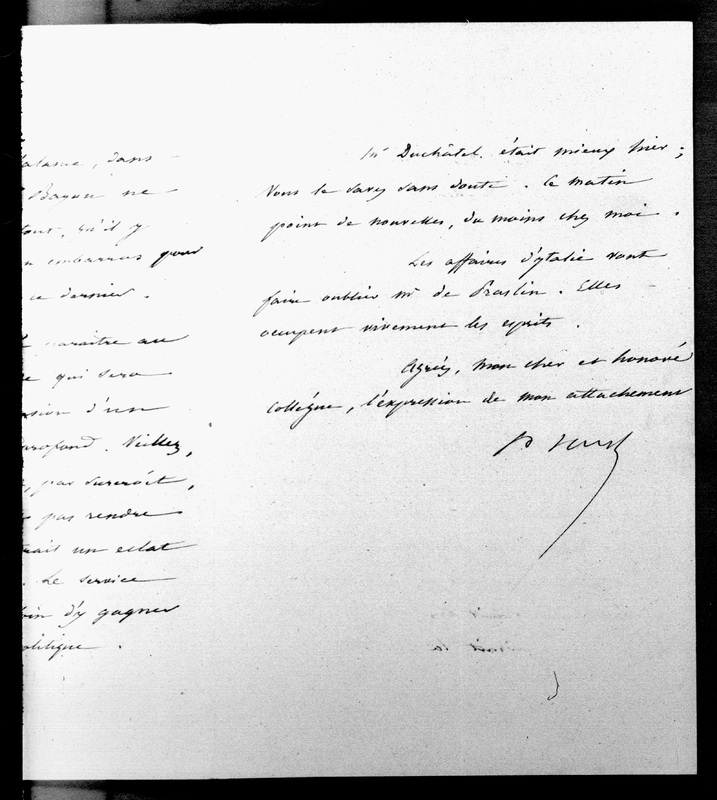 dans
Bayou ne
tout, qu'il y
embarras pour
ce dernier.
paraître au
qui sera
d'un
profond. Veillez,
par surcroît,
pas rendre
un eclat
. Le service
d'y gagner
olitique.
Mr Duchâtel était mieux hier;
Vous le savez sans doute. Ce matin
point de nouvelles, du moins chez moi.
Les affaires d'ytalie vont
faire oublier Mr de Praslin. Elles
occupent vivement les esprits.
Agréez, mon cher et honoré
Collégue, l'expression de mon attachement